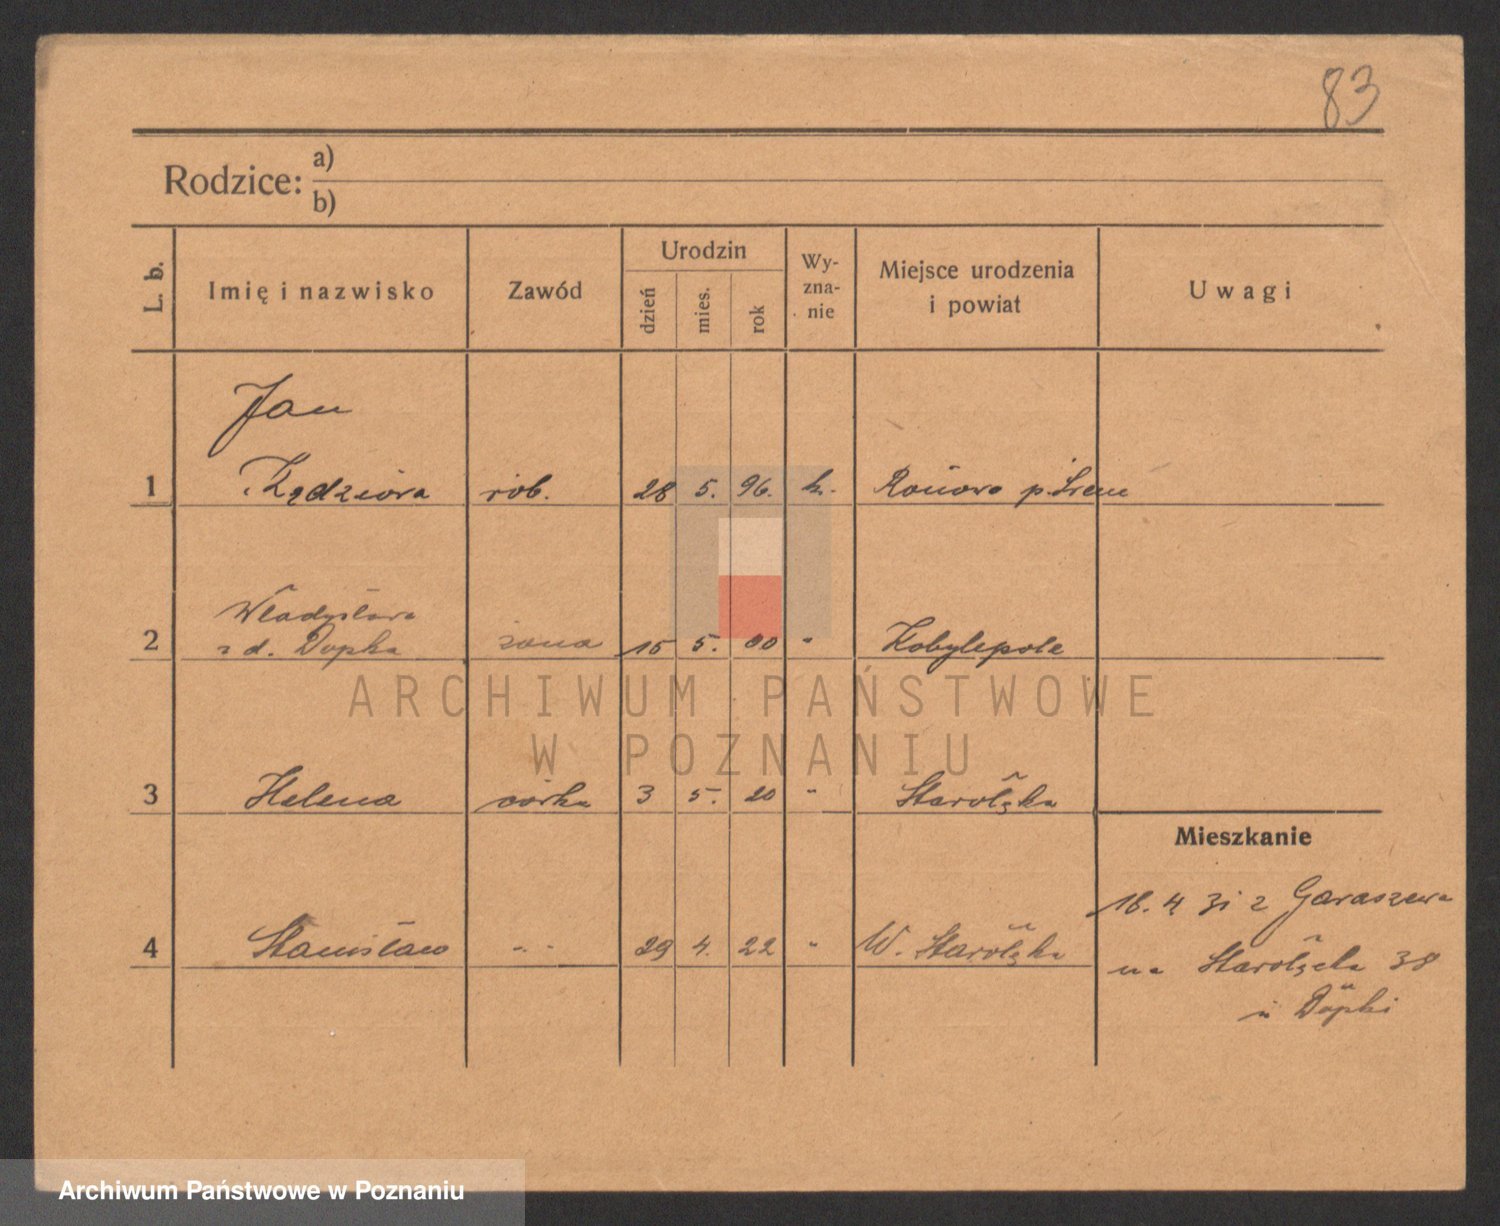 83
Rodzice: a)
b)
L. b. Imię i nazwisko Zawód Urodzin dzień mies. rok Wy-zna-nie Miejsce urodzenia i powiat Uwagi
Jan
1 Kędziora rob. 28 5. 96. k. p. Śrem
Władysława
2 z d. Dopka żona 15 5. 00 " Kobylepole
3 Helena córka 3 5. 20 " Starołęka
Mieszkanie
18. 4 31 z Garaszewa
4 Stanisław " " 29 4. 22 " W. Starołęka
na Starołęcka 38
u Dopki
ARCHIWUM PAŃSTWOWE
W POZNANIU
Archiwum Państwowe w Poznaniu